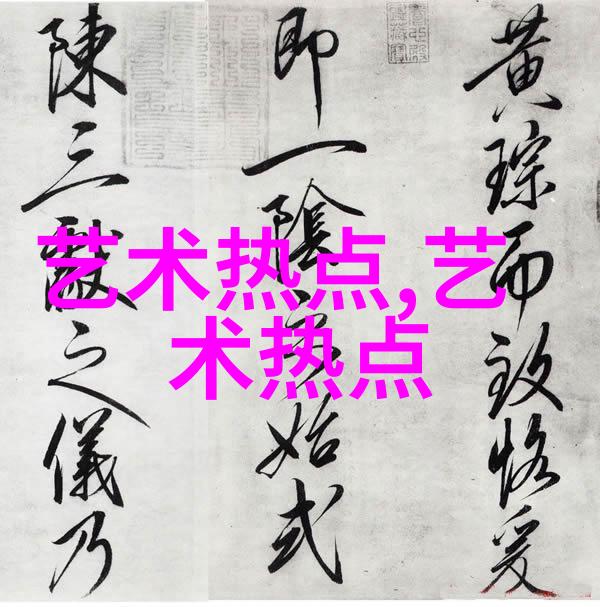 黄琮而致恪爰
即一陰之始式
陳三獻之儀乃
艺术热点,艺
术热点